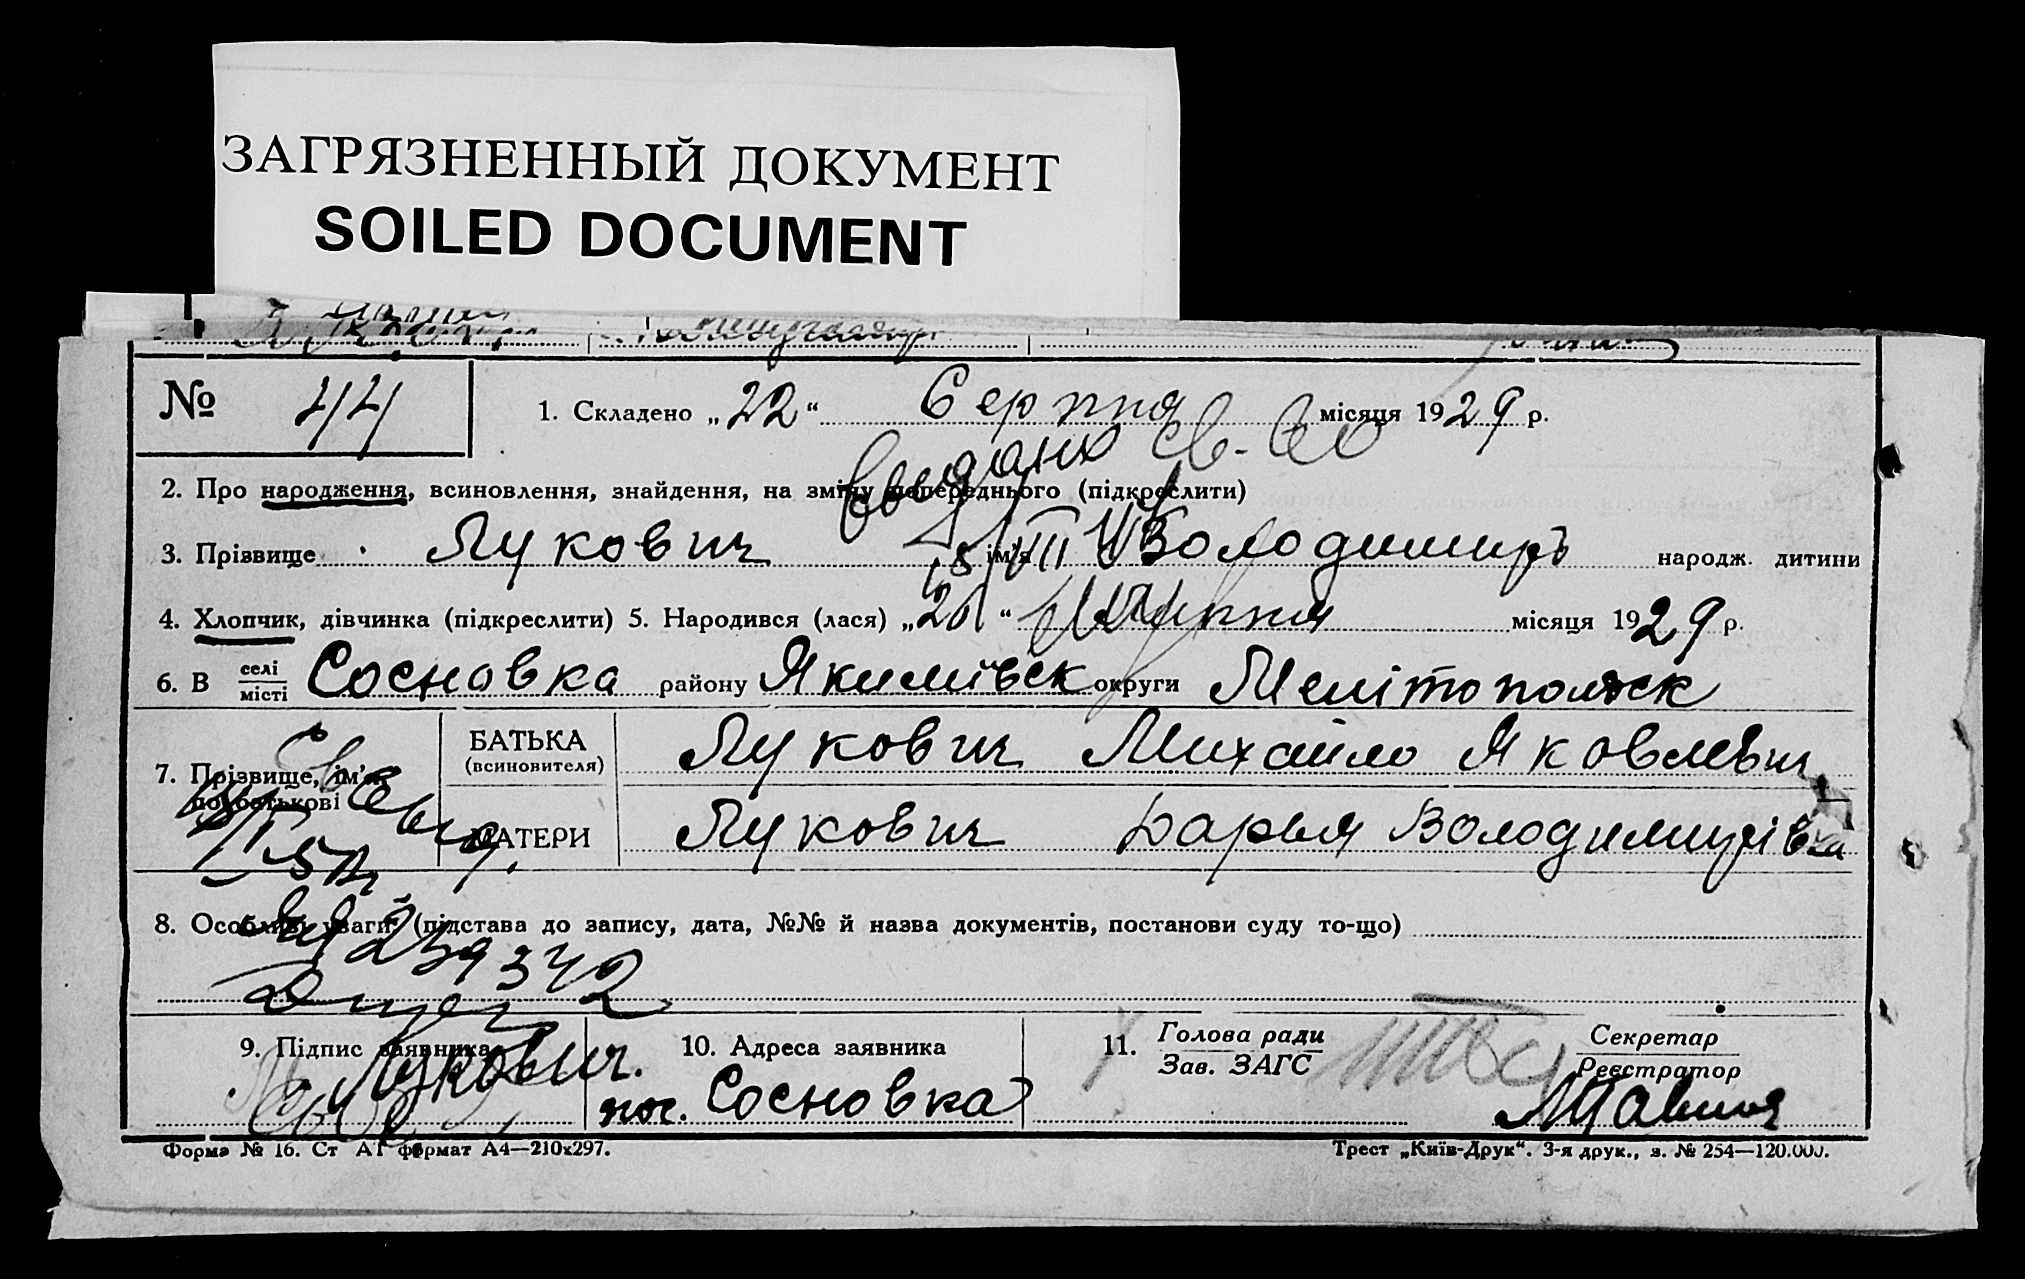 ЗАГРЯЗНЕННЫЙ ДОКУМЕНТ
SOILED DOCUMENT
№ 44
1. Складено „22“ Серпня місяця 1929 р.
2. Про народження, всиновлення, знайдення, на зміну попереднього (підкреслити)
3. Прізвище Лукович ім'я Володимиръ народж. дитини
4. Хлопчик, дівчинка (підкреслити) 5. Народився (лася) „21“ Липня місяця 1929 р.
6. В селі місті Сосновка району Якимівск округи Мелітопольск
7. Прізвище, ім'я по батькові
БАТЬКА (всиновителя) Лукович Михайло Яковлевич
МАТЕРИ Лукович Дарья Володимирівка
8. Особливі уваги: (підстава до запису, дата, №№ й назва документів, постанови суду то-що)
9. Підпис заявника
Лукович.
10. Адреса заявника
пос. Сосновка
11. Голова ради
Зав. ЗАГС
Секретар
Реєстратор
Форма № 16. Ст АТ формат А4—210х297.
Трест „Київ-Друк“. 3-я друк., з. № 254—120.000.